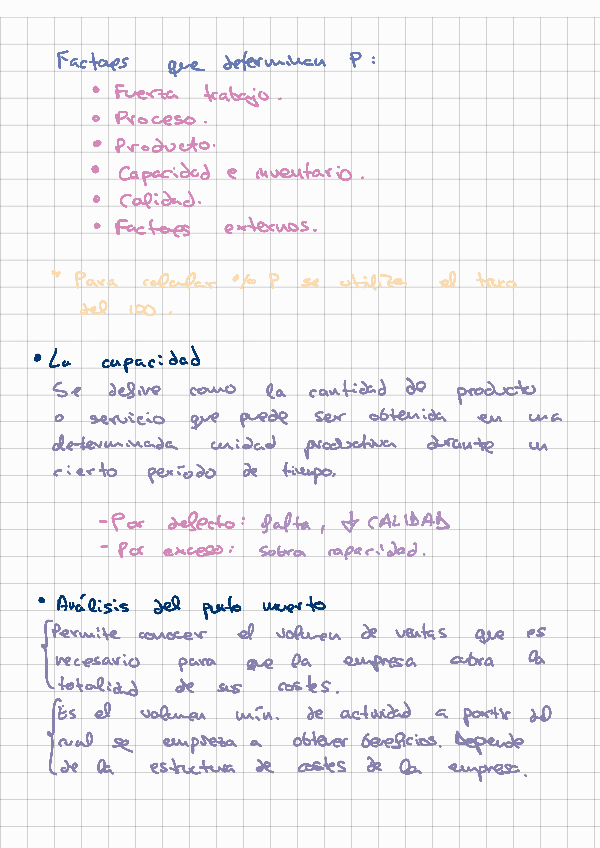 Factores que determinan P:
• Fuerza trabajo.
• Proceso.
• Producto.
• Capacidad e inventario.
• Calidad.
• Factores externos.
* Para calcular % P se utiliza el tanto
del 100.
• La capacidad
Se define como la cantidad de producto
o servicio que puede ser obtenida en una
determinada unidad productiva durante un
cierto período de tiempo.
- Por defecto: falta, ↓ CALIDAD
- Por exceso: sobra capacidad.
• Análisis del punto muerto
Permite conocer el volumen de ventas que es
necesario para que la empresa cubra la
totalidad de sus costes.
Es el volumen mín. de actividad a partir del
cual se empieza a obtener beneficios. Depende
de la estructura de costes de la empresa.